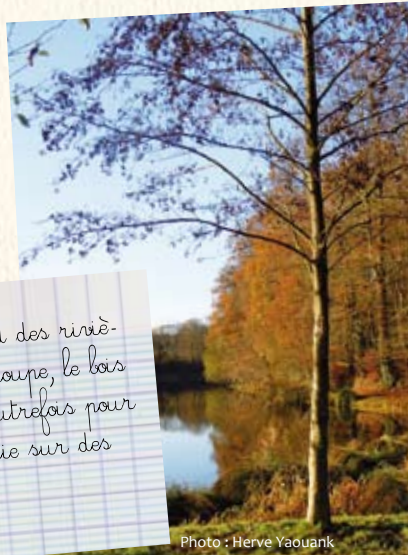 des riviè-
oupe, le bois
utrefois pour
ie sur des
Photo : Herve Yaouank